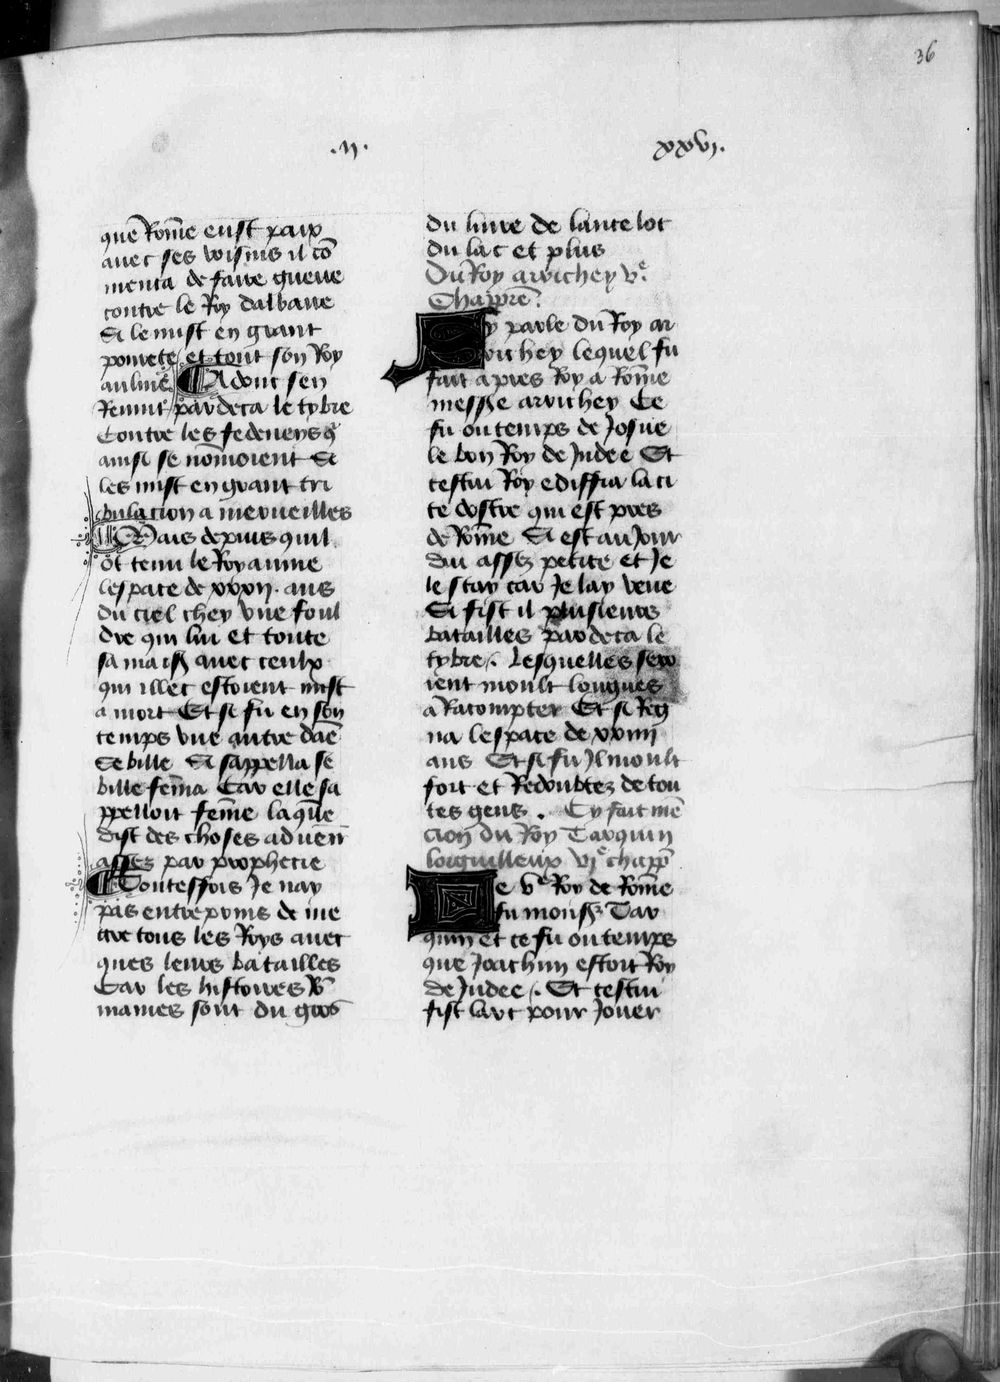 36
.ii. xxvi.
que Rome eust paix
avec ses voisins il co̅
menca de faire guerre
contre le Roy dalbane
Si le mist en grant
povrete et tout son Roy
aulme Adonc sen
Revint par deca le tybre
Contre les fedeneys q̅
ainsi se no̅moient Et
les mist en grant tri
bulacion a merveilles
Mais depuis quil
ot tenu le Royaume
lespace de xxxii. ans
du ciel chey une foul
dre qui lui et toute
sa mais̅ avec ceulx
qui illec estoient mist
a mort Et si fu en son
temps une autre da̅e
Sebille Si sappella se
bille fem̅a Car elle sa
ppelloit fem̅e laque̅
dist des choses adven̅
assez par prophecie
Toutesfois Je nay
pas entreprins de me
ctre tous les Roys avec
ques leurs batailles
Car les histoires Ro̅
maines sont du gros
du livre de lancelot
du lac et plus
Du Roy arvichey v.e
Chappre̅.
Cy parle du Roy ar
vichey lequel fu
fait apres Roy a Rom̅e
messre arvichey Ce
fu ou temps de Josue
le bon Roy de Judee Et
cestui Roy ediffia la ci
te dostre qui est pres
de Rom̅e Si est au Jour
dui assez petite et Je
le scay car Je lay veue
Si fist il plusieurs
batailles par deca le
tybre. Lesquelles sero
ient moult longues
a Racompter Et si Reg
na lespace de xxiiii
ans Et si fu Il moult
fort et Redoubtez de tou
tes gens. Cy fait me̅
cion du Roy Tarquin
lorguilleux vi.e chapp̅
Le v.e Roy de Rom̅e
fu mons̅ Tar
quin et ce fu ou temps
que Joachim estoit Roy
de Judee. Et cestui
fist lart pour Jouer